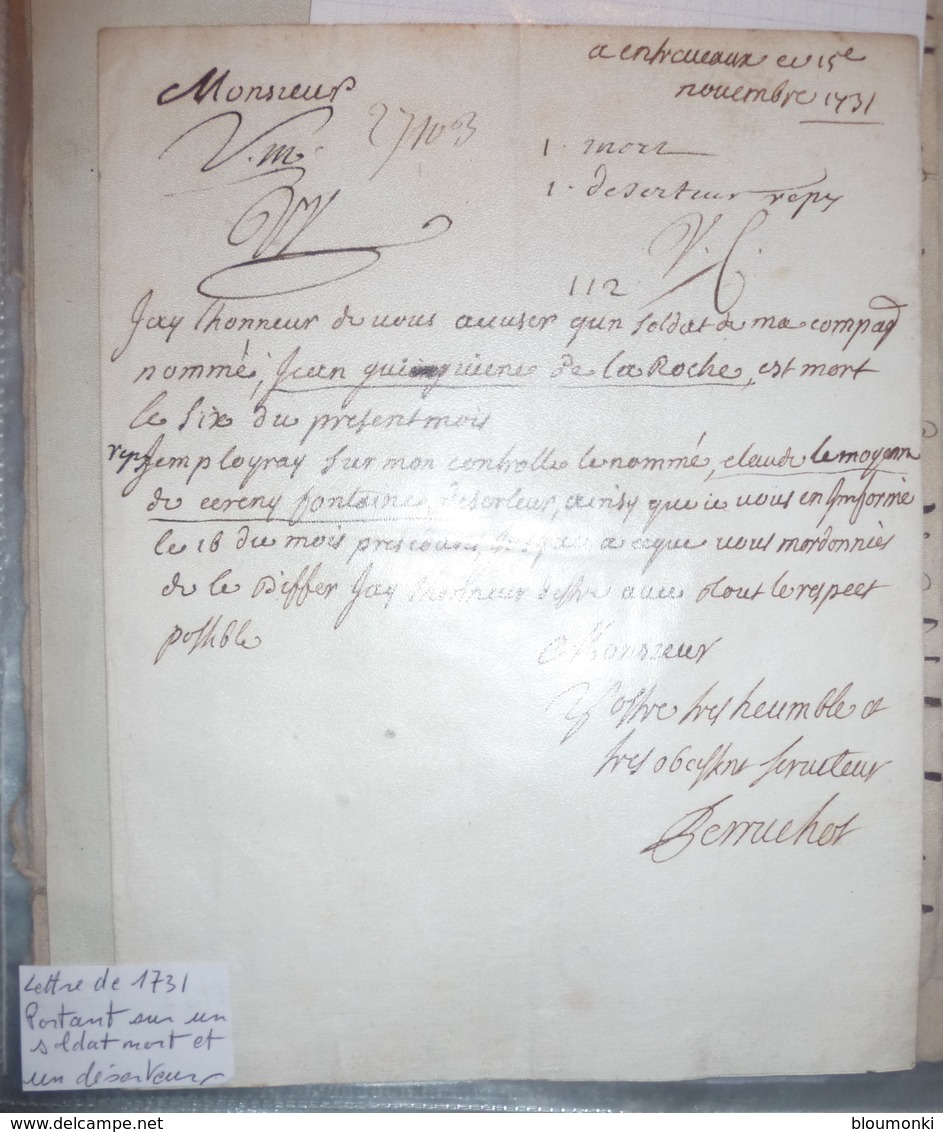 a entreveaux ce 15e
novembre 1731
Monsieur
V. m.
27 no
1. mort
1. deserteur repy
V. C.
112
Jay lhonneur de vous acuser qun soldat de ma compag
nommé, Jean de la Roche, est mort
le six du present mois
repy Jemployray sur mon controlle le nommé, claude lemoyenn
de cereny fontaine, deserteur, ainsy que ie vous en Informé
le 16 du mois a ceque vous mordonniés
de le Biffer Jay lhonneur destre avec tout le respect
possible
Monsieur
Vostre tres heumble et
tres obeissent serviteur
Perruchot
Lettre de 1731
Portant sur un
soldat mort et
un déserteur
delcampe.net
bloumonki